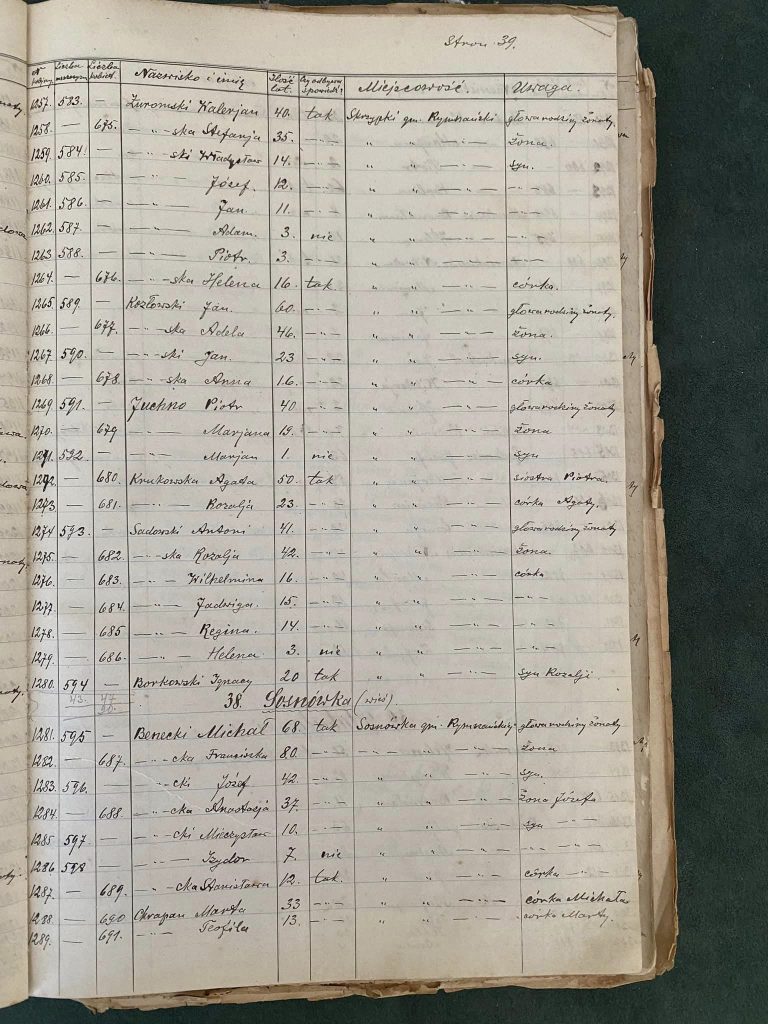 Stron 39.
N Liczba Liczba Nazwisko i imię Ilość Czy odbył Miejscowość. Uwaga.
mężczyzn kobiet. lat. spowiedź?
1257. 583. — Żuromski Walerjan 40. tak Skrzypki gm. Rypniański głowa rodziny żonaty.
1258. — 675. — „ — ska Stefanja 35. — „ — „ „ — „ — żona.
1259. 584. — — „ — ski Władysław 14. — „ — „ „ — „ — syn.
1260. 585. — — „ — Józef. 12. — „ — „ „ — „ — — „ —
1261. 586. — — „ — Jan. 11. — „ — „ „ — „ — — „ —
1262. 587. — — „ — Adam. 3. nie „ „ — „ — — „ —
1263 588. — — „ — Piotr. 3. — „ — „ „ — „ — — „ —
1264. — 676. — „ — ska Helena 16. tak „ „ — „ — córka.
1265. 589. — Kozłowski Jan. 60. — „ — „ „ — „ — głowa rodziny żonaty.
1266. — 677. — „ — ska Adela 46. — „ — „ „ — „ — żona.
1267. 590. — — „ — ski Jan. 23 — „ — „ „ — „ — syn.
1268. — 678. — „ — ska Anna 16. — „ — „ „ — „ — córka
1269. 591. — Juchno Piotr 40 — „ — „ „ — „ — głowa rodziny żonaty
1270. — 679 — „ — Marjana 19. — „ — „ „ — „ — żona
1271. 592. — — „ — Marjan 1. nie „ „ — „ — syn
1272. — 680. Krukowska Agata 50. tak „ „ — „ — siostra Piotra
1273 — 681. — „ — Rozalja 23. — „ — „ „ — „ — córka Agaty.
1274 593. — Sadowski Antoni 41. — „ — „ „ — „ — głowa rodziny żonaty
1275. — 682. — „ — ska Rozalja 42. — „ — „ „ — „ — żona.
1276. — 683. — „ — Wilhelmina 16. — „ — „ „ — „ — córka
1277. — 684. — „ — Jadwiga. 15. — „ — „ „ — „ — — „ —
1278. — 685 — „ — Regina. 14. — „ — „ „ — „ — — „ —
1279. — 686. — „ — Helena 3. nie „ „ — „ — — „ —
1280. 594 — Borkowski Ignacy 20 tak „ „ — „ — syn Rozalji.
43. 47
38. Sosnówka (wieś)
1281. 595 — Benecki Michał 68. tak Sosnówka gm. Rypniański głowa rodziny żonaty
1282. — 687. — „ — cka Franciszka 80. — „ — — „ — „ — „ — żona
1283. 596. — — „ — cki Józef 42. — „ — „ „ — „ — syn.
1284. — 688. — „ — cka Anastazja 37. — „ — „ „ — „ — żona Józefa
1285 597. — — „ — cki Mieczysław 10. — „ — „ „ — „ — syn
1286 598 — — „ — Izydor 7. nie „ „ — „ — — „ —
1287. — 689. — „ — cka Stanisława 12. tak. „ „ — „ — córka — „ —
1288. — 690 Chrapan Marta 33 — „ — „ „ — „ — córka Michała
1289. — 691. — „ — Teofila 13. — „ — „ „ — „ — córka Marty.